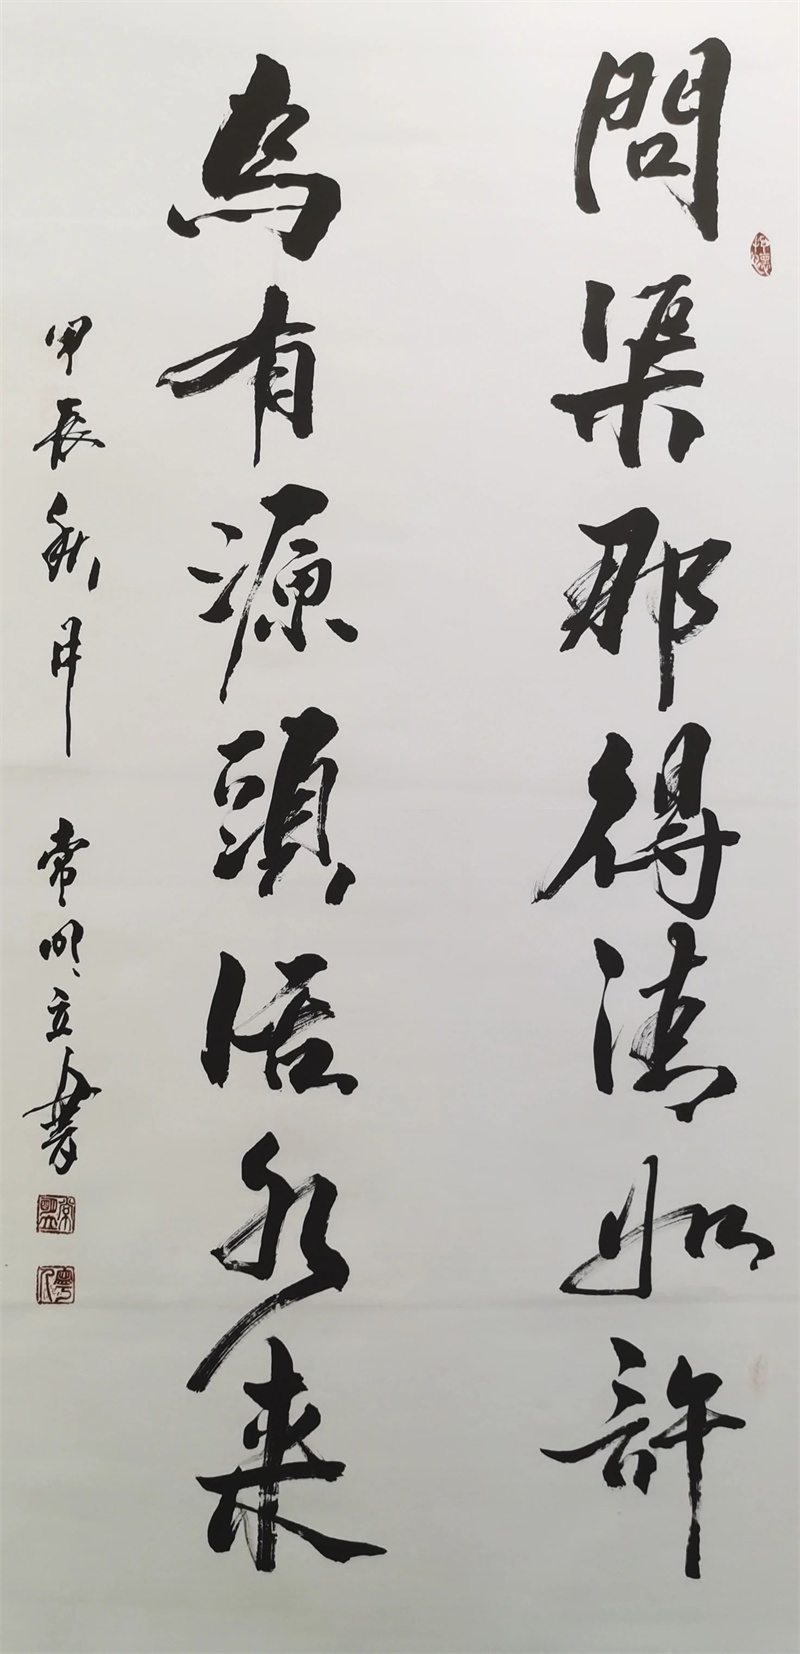 問渠那得清如許
為有源頭活水来
甲辰秋月 常明立書